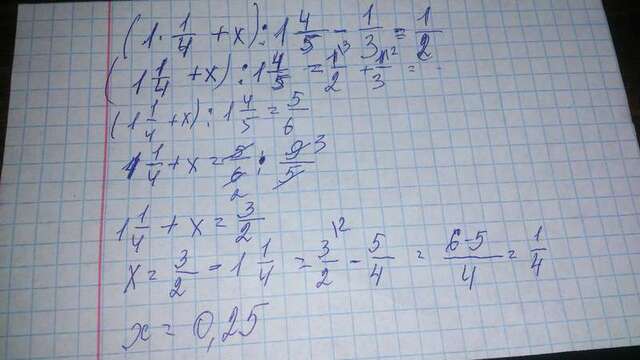 (1·1/4 + x) : 1 4/5 − 1/3 = 1/2
(1 1/4 + x) : 1 4/5 = 1\3/2 + 1\2/3 =
(1 1/4 + x) : 1 4/5 = 5/6
1 1/4 + x = 5/6 2 · 9 3/5
1 1/4 + x = 3/2
x = 3/2 − 1 1/4 = 3\2/2 − 5/4 = 6-5/4 = 1/4
x = 0,25